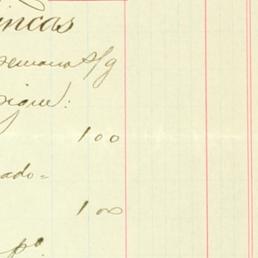 incas
semana s/g
sique:
100
ado=
100
po